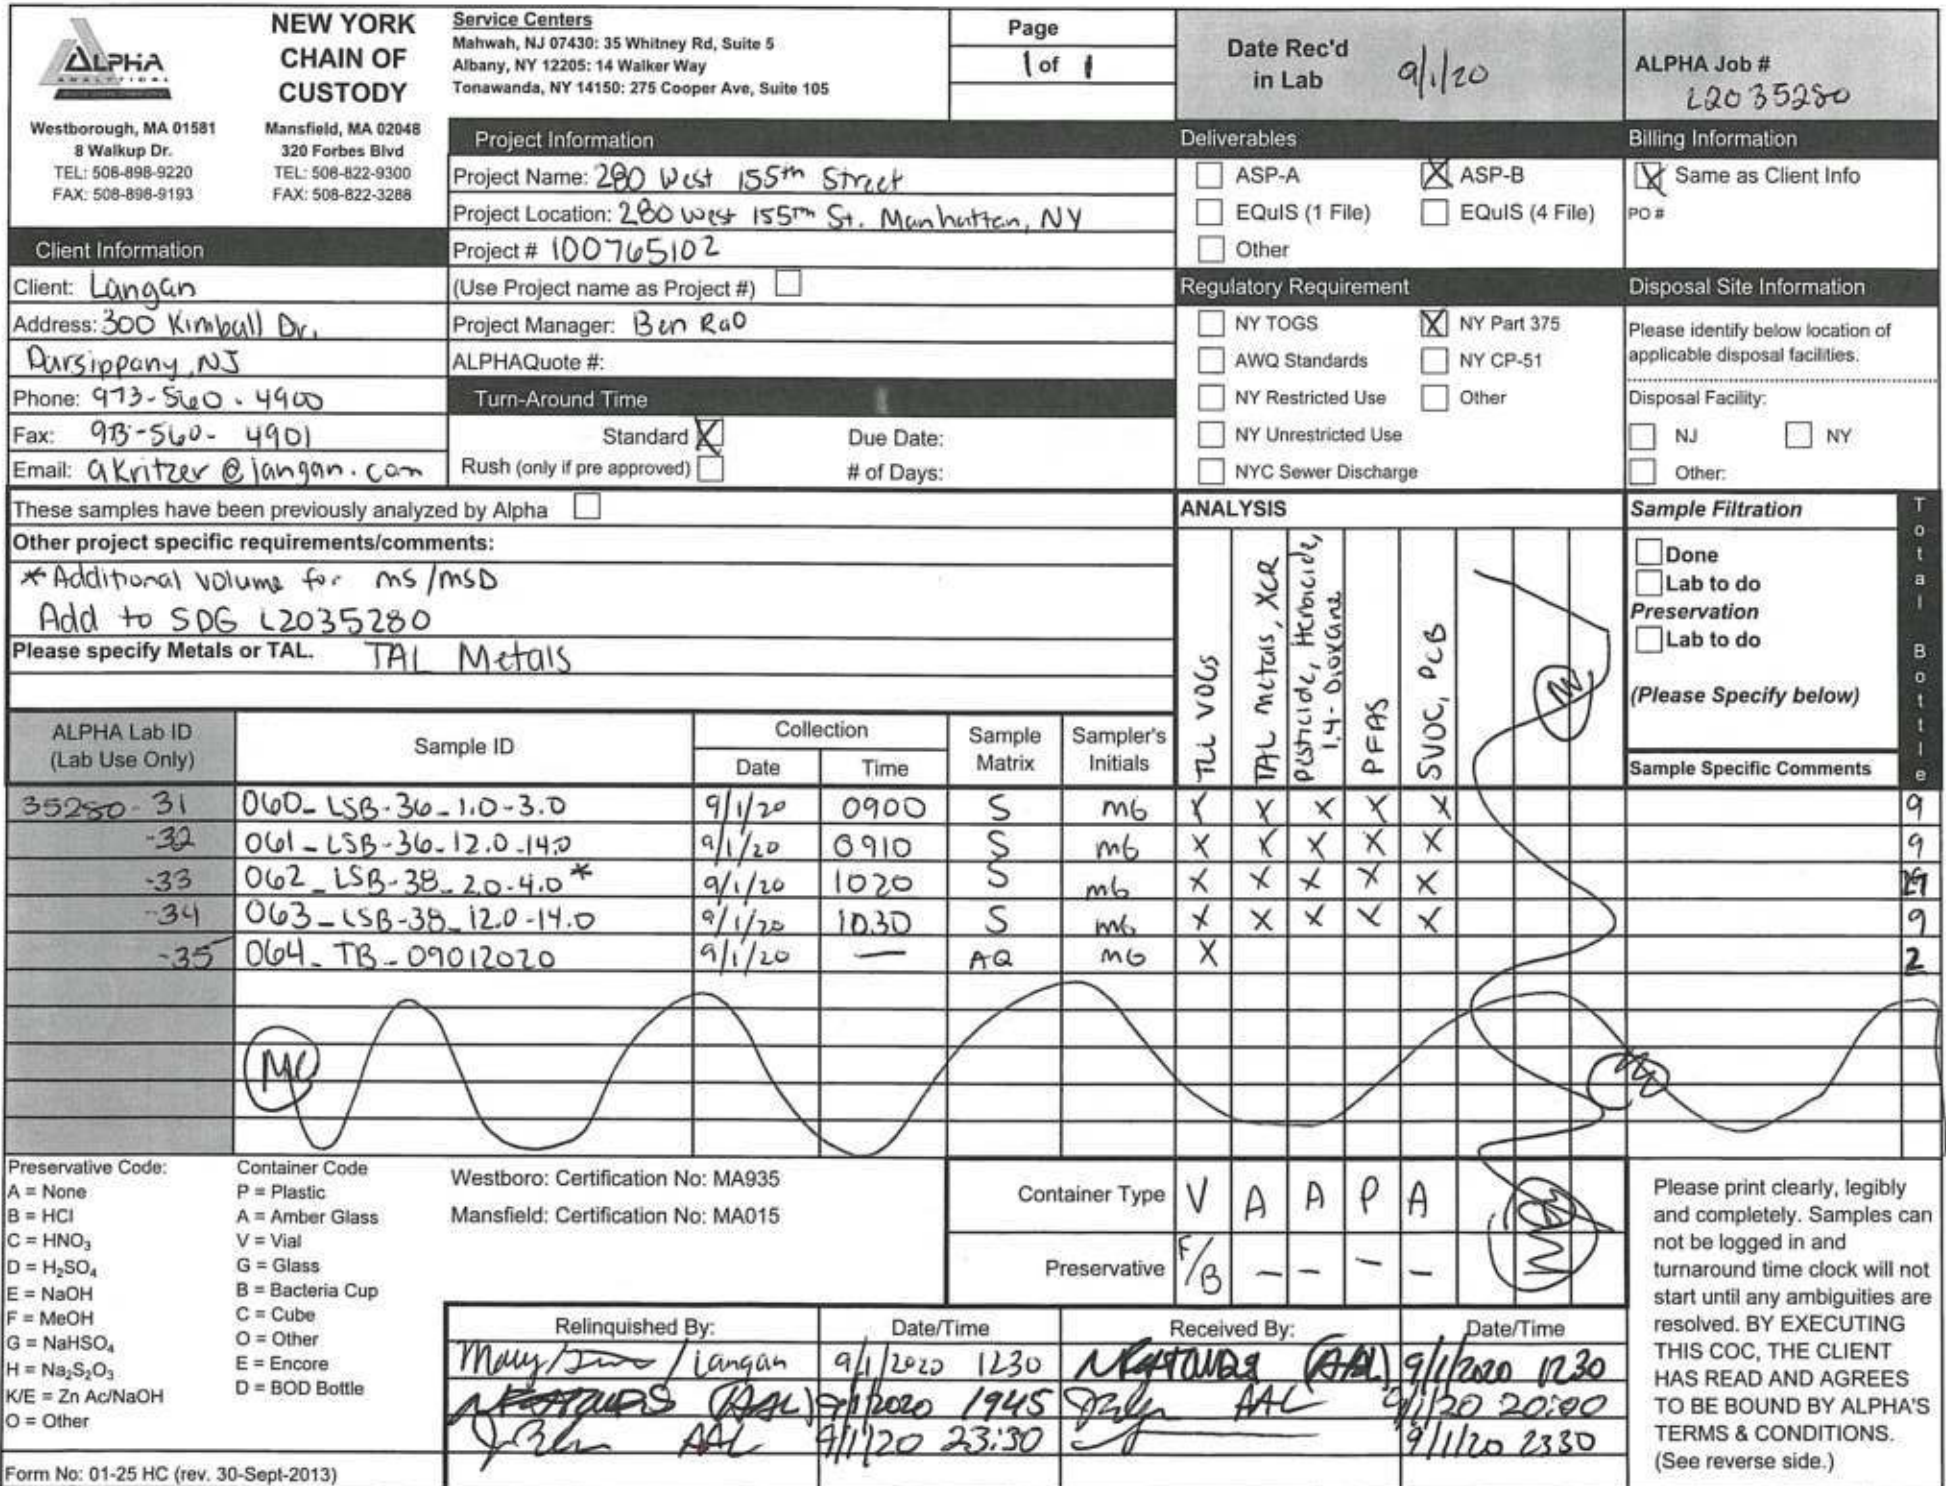 ALPHA
ANALYTICAL
NEW YORK
CHAIN OF
CUSTODY
Westborough, MA 01581
8 Walkup Dr.
TEL: 508-898-9220
FAX: 508-898-9193
Mansfield, MA 02048
320 Forbes Blvd
TEL: 508-822-9300
FAX: 508-822-3288
Service Centers
Mahwah, NJ 07430: 35 Whitney Rd, Suite 5
Albany, NY 12205: 14 Walker Way
Tonawanda, NY 14150: 275 Cooper Ave, Suite 105
Page
1 of 1
Date Rec'd
in Lab 9/1/20
ALPHA Job #
L2035280
Client Information
Client: Langan
Address: 300 Kimball Dr.
Parsippany, NJ
Phone: 973-560-4900
Fax: 973-560-4901
Email: akritzer@langan.com
Project Information
Project Name: 280 West 155th Street
Project Location: 280 West 155th St. Manhattan, NY
Project # 100765102
(Use Project name as Project #)
Project Manager: Ben Rao
ALPHAQuote #:
Turn-Around Time
Standard X Due Date:
Rush (only if pre approved) # of Days:
Deliverables
ASP-A X ASP-B
EQuIS (1 File) EQuIS (4 File)
Other
Regulatory Requirement
NY TOGS X NY Part 375
AWQ Standards NY CP-51
NY Restricted Use Other
NY Unrestricted Use
NYC Sewer Discharge
Billing Information
X Same as Client Info
PO #
Disposal Site Information
Please identify below location of
applicable disposal facilities.
Disposal Facility:
NJ NY
Other:
These samples have been previously analyzed by Alpha
Other project specific requirements/comments:
*Additional volume for ms/msD
Add to SDG L2035280
Please specify Metals or TAL. TAL Metals
ANALYSIS
TCL VOCs
TAL metals, XCR
Pesticide, Herbicide,
1,4-Dioxane
PFAS
SVOC, PCB
Sample Filtration
Done
Lab to do
Preservation
Lab to do
(Please Specify below)
Sample Specific Comments
Total Bottle
ALPHA Lab ID
(Lab Use Only)
Sample ID
Collection
Date Time
Sample
Matrix
Sampler's
Initials
35280-31 060_LSB-36_1.0-3.0 9/1/20 0900 S MG X X X X X 9
-32 061_LSB-36_12.0-14.0 9/1/20 0910 S MG X X X X X 9
-33 062_LSB-38_2.0-4.0* 9/1/20 1020 S MG X X X X X
-34 063_LSB-38_12.0-14.0 9/1/20 1030 S MG X X X X X 9
-35 064_TB_09012020 9/1/20 — AQ MG X 2
MG
Preservative Code:
A = None
B = HCl
C = HNO₃
D = H₂SO₄
E = NaOH
F = MeOH
G = NaHSO₄
H = Na₂S₂O₃
K/E = Zn Ac/NaOH
O = Other
Container Code
P = Plastic
A = Amber Glass
V = Vial
G = Glass
B = Bacteria Cup
C = Cube
O = Other
E = Encore
D = BOD Bottle
Westboro: Certification No: MA935
Mansfield: Certification No: MA015
Container Type V A A P A
Preservative F/B - - - -
Relinquished By: Date/Time Received By: Date/Time
/Langan 9/1/2020 1230 (AAL) 9/1/2020 1230
(AAL) 9/1/2020 1945 AAL 9/1/20 20:00
AAL 9/1/20 23:30 9/1/20 2330
Please print clearly, legibly
and completely. Samples can
not be logged in and
turnaround time clock will not
start until any ambiguities are
resolved. BY EXECUTING
THIS COC, THE CLIENT
HAS READ AND AGREES
TO BE BOUND BY ALPHA'S
TERMS & CONDITIONS.
(See reverse side.)
Form No: 01-25 HC (rev. 30-Sept-2013)